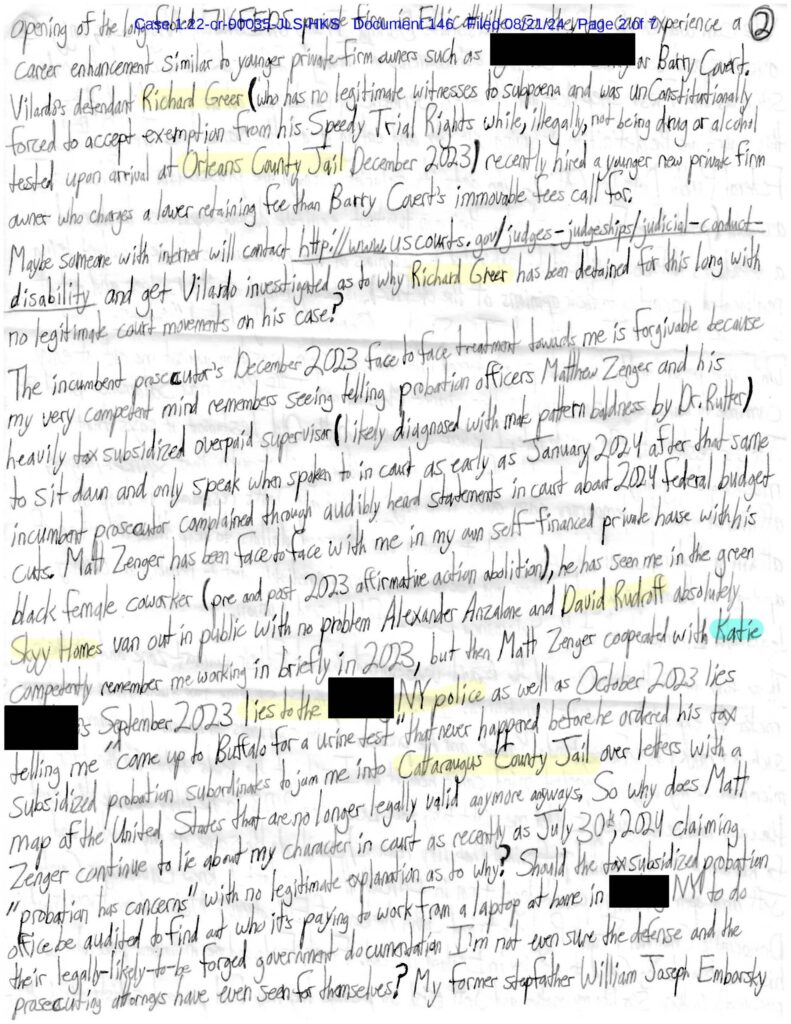 Case 1:22-cr-00035-JLS-HKS Document 146 Filed 08/21/24 Page 2 of 7
opening of the long private firm in experience a 2
career enhancement similar to younger private-firm owners such as or Barry Covert.
Vilardo's defendant Richard Greer (who has no legitimate witnesses to subpoena and was unConstitutionally
forced to accept exemption from his Speedy Trial Rights while, illegally, not being drug or alcohol
tested upon arrival at Orleans County Jail December 2023) recently hired a younger new private firm
owner who charges a lower retaining fee than Barry Covert's immovable fees call for.
Maybe someone with internet will contact http://www.uscourts.gov/judges-judgeships/judicial-conduct-
disability and get Vilardo investigated as to why Richard Greer has been detained for this long with
no legitimate court movements on his case?
The incumbent prosecutor's December 2023 face to face treatment towards me is forgivable because
my very competent mind remembers seeing telling probation officers Matthew Zenger and his
heavily tax subsidized overpaid supervisor (likely diagnosed with male pattern baldness by Dr. Rutter)
to sit down and only speak when spoken to in court as early as January 2024 after that same
incumbent prosecutor complained through audibly heard statements in court about 2024 federal budget
cuts. Matt Zenger has been face to face with me in my own self-financed private house with his
black female coworker (pre and post 2023 affirmative action abolition), he has seen me in the green
Skyy Homes van out in public with no problem Alexander Anzalone and David Rudroff absolutely
competently remember me working in briefly in 2023, but then Matt Zenger cooperated with Katie
's September 2023 lies to the NY police as well as October 2023 lies
telling me "come up to Buffalo for a urine test" that never happened before he ordered his tax
subsidized probation subordinates to jam me into Cattaraugus County Jail over letters with a
map of the United States that are no longer legally valid anymore anyways. So why does Matt
Zenger continue to lie about my character in court as recently as July 30th, 2024 claiming
"probation has concerns" with no legitimate explanation as to why? Should the tax subsidized probation
office be audited to find out who it's paying to work from a laptop at home in NY to do
their legally-likely-to-be forged government documentation I'm not even sure the defense and the
prosecuting attorneys have even seen for themselves? My former stepfather William Joseph Emborsky